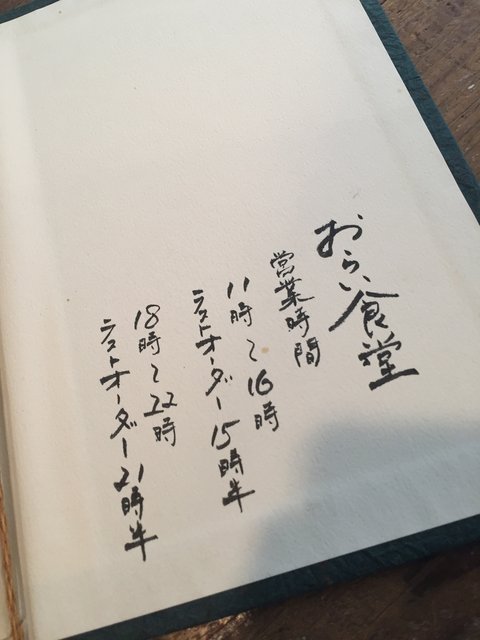 おらい食堂
営業時間
11時〜16時
ラストオーダー15時半
18時〜22時
ラストオーダー21時半